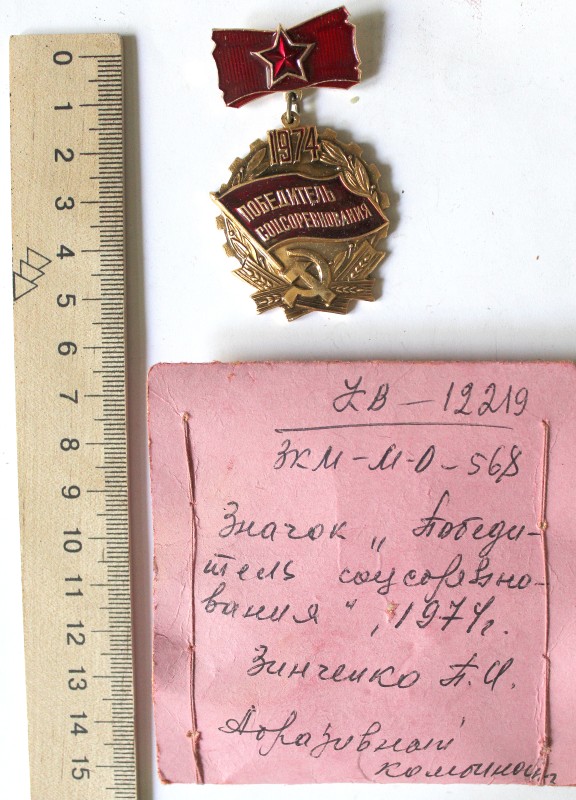 0
1
2
3
4
5
6
7
8
9
10
11
12
13
14
15
1974
ПОБЕДИТЕЛЬ
СОЦСОРЕВНОВАНИЯ
КВ - 12219
ЗКМ-М-О-568
Значок „ Победи-
тель соцсоревно-
вания “, 1974г.
Зинченко П.И.
Абразивный
комбинат